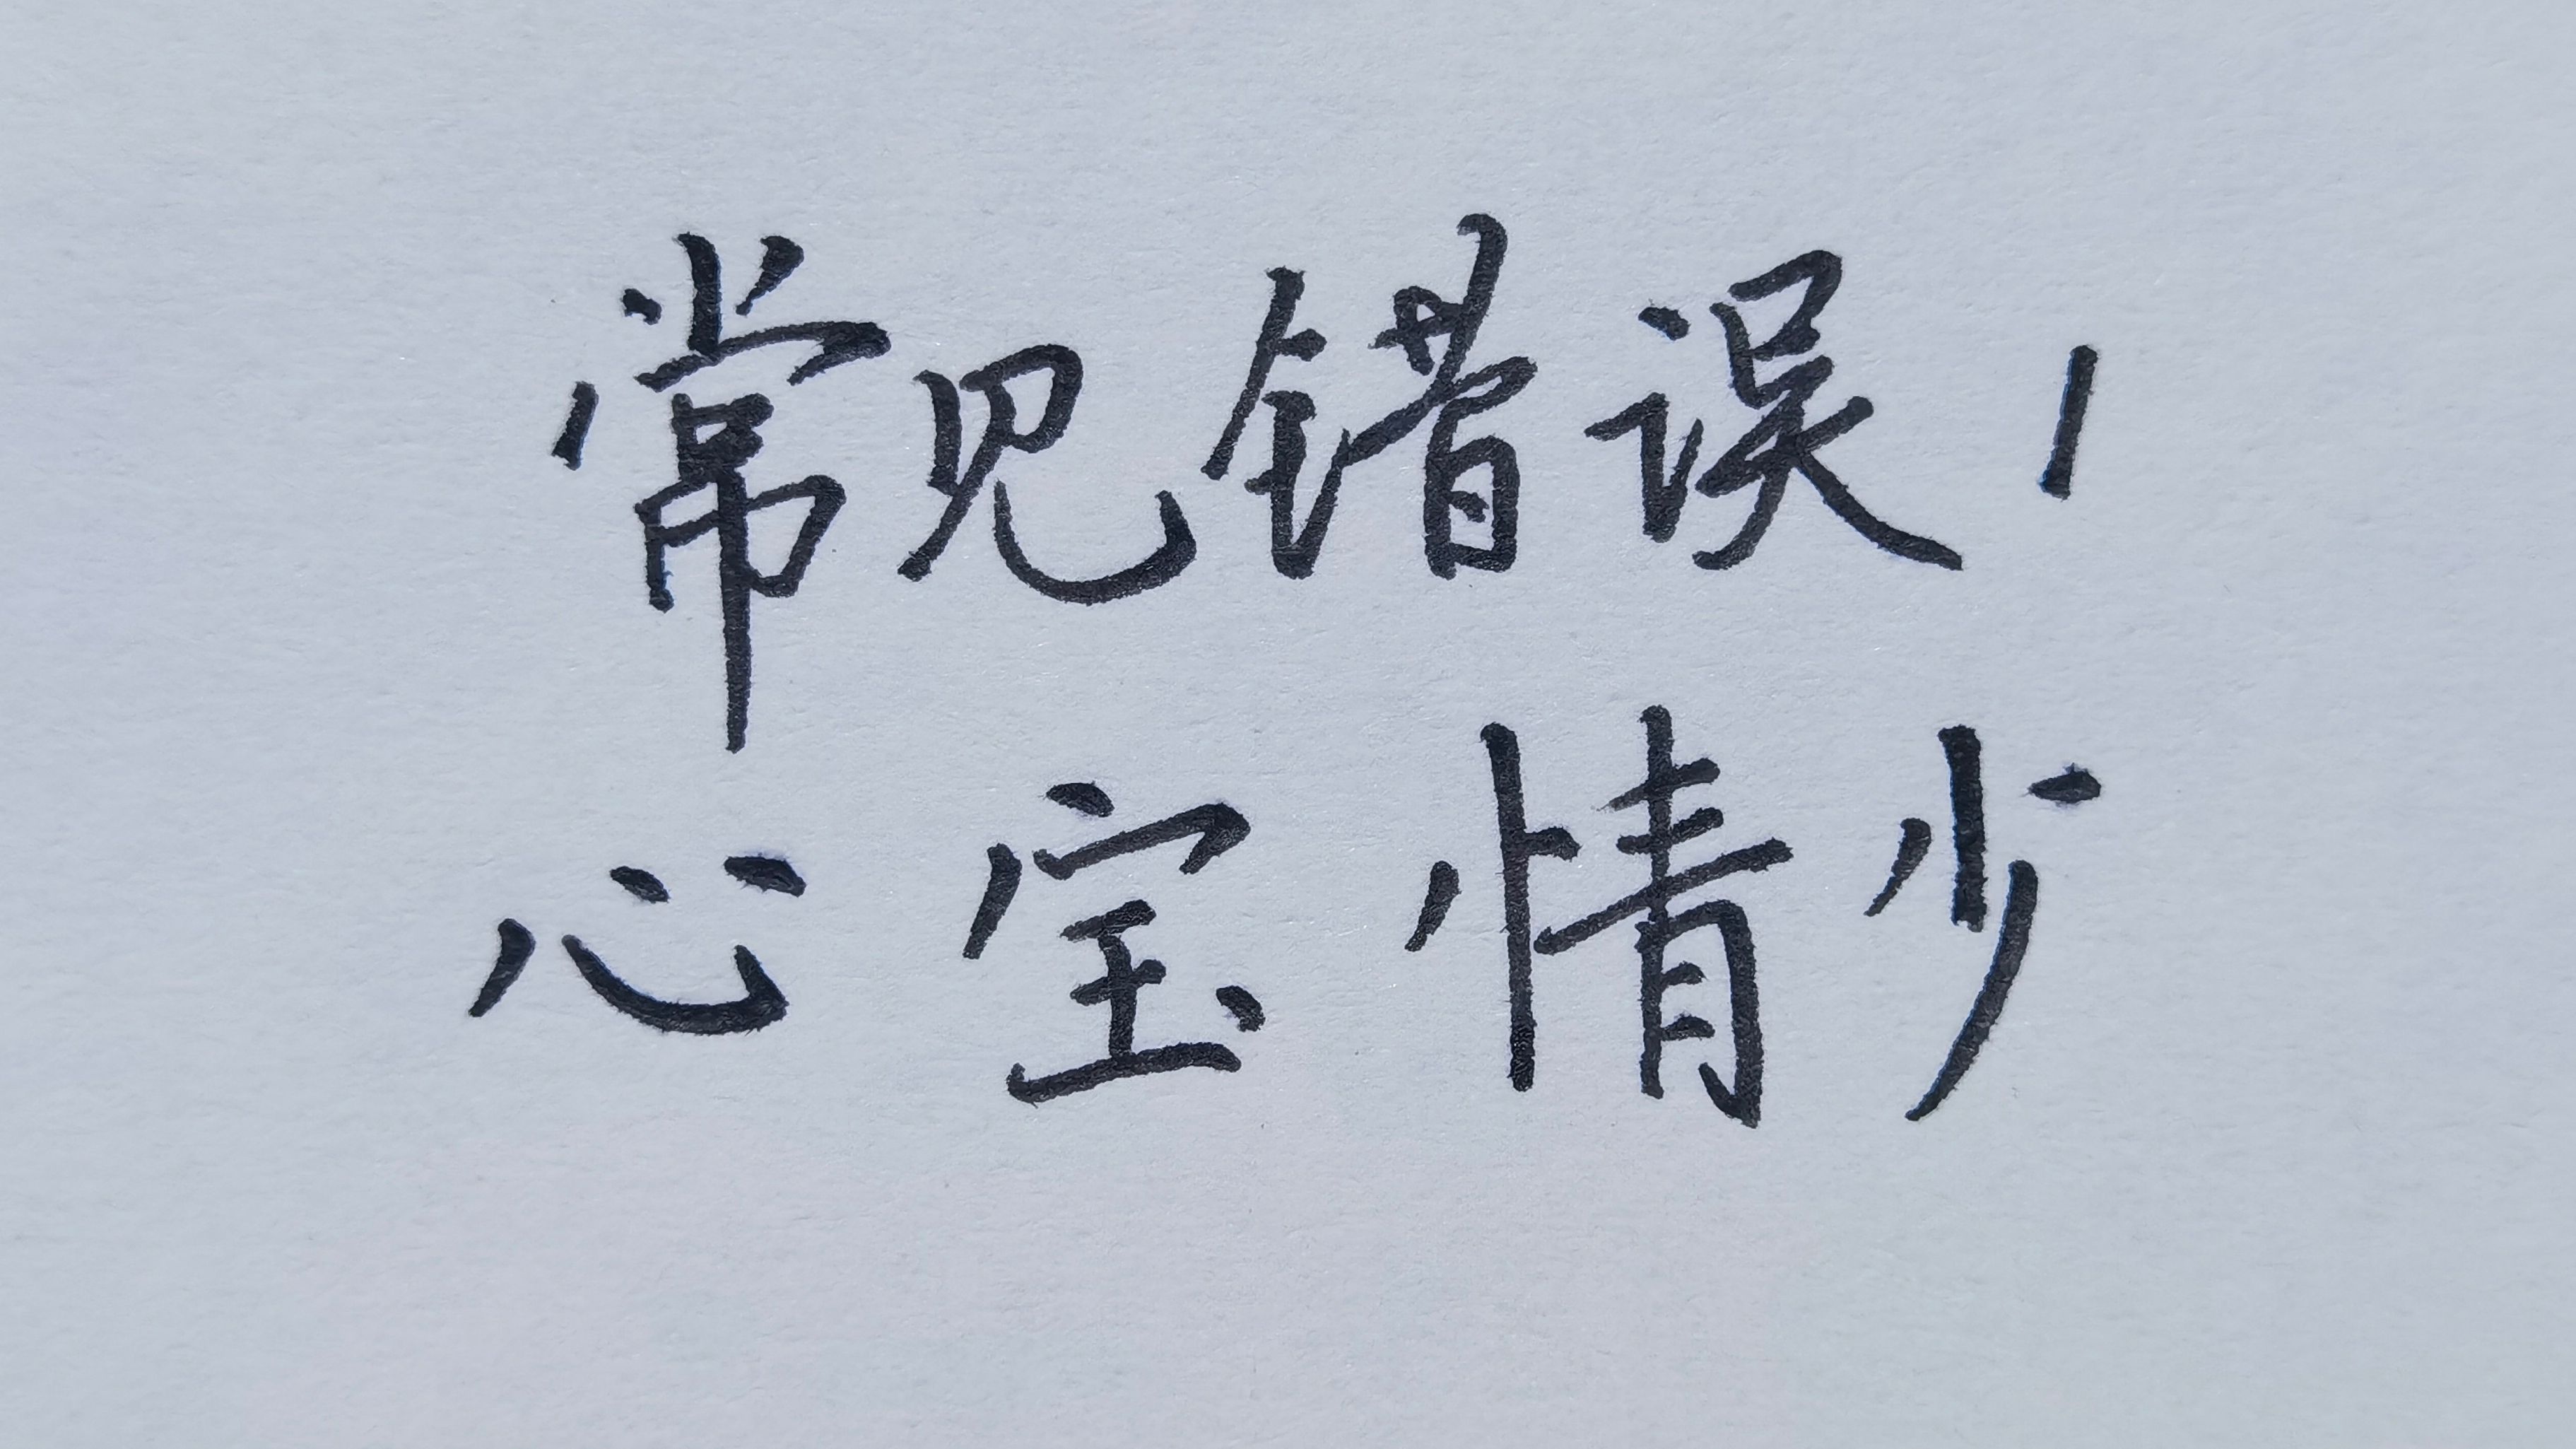 常见错误丿
心宝情少